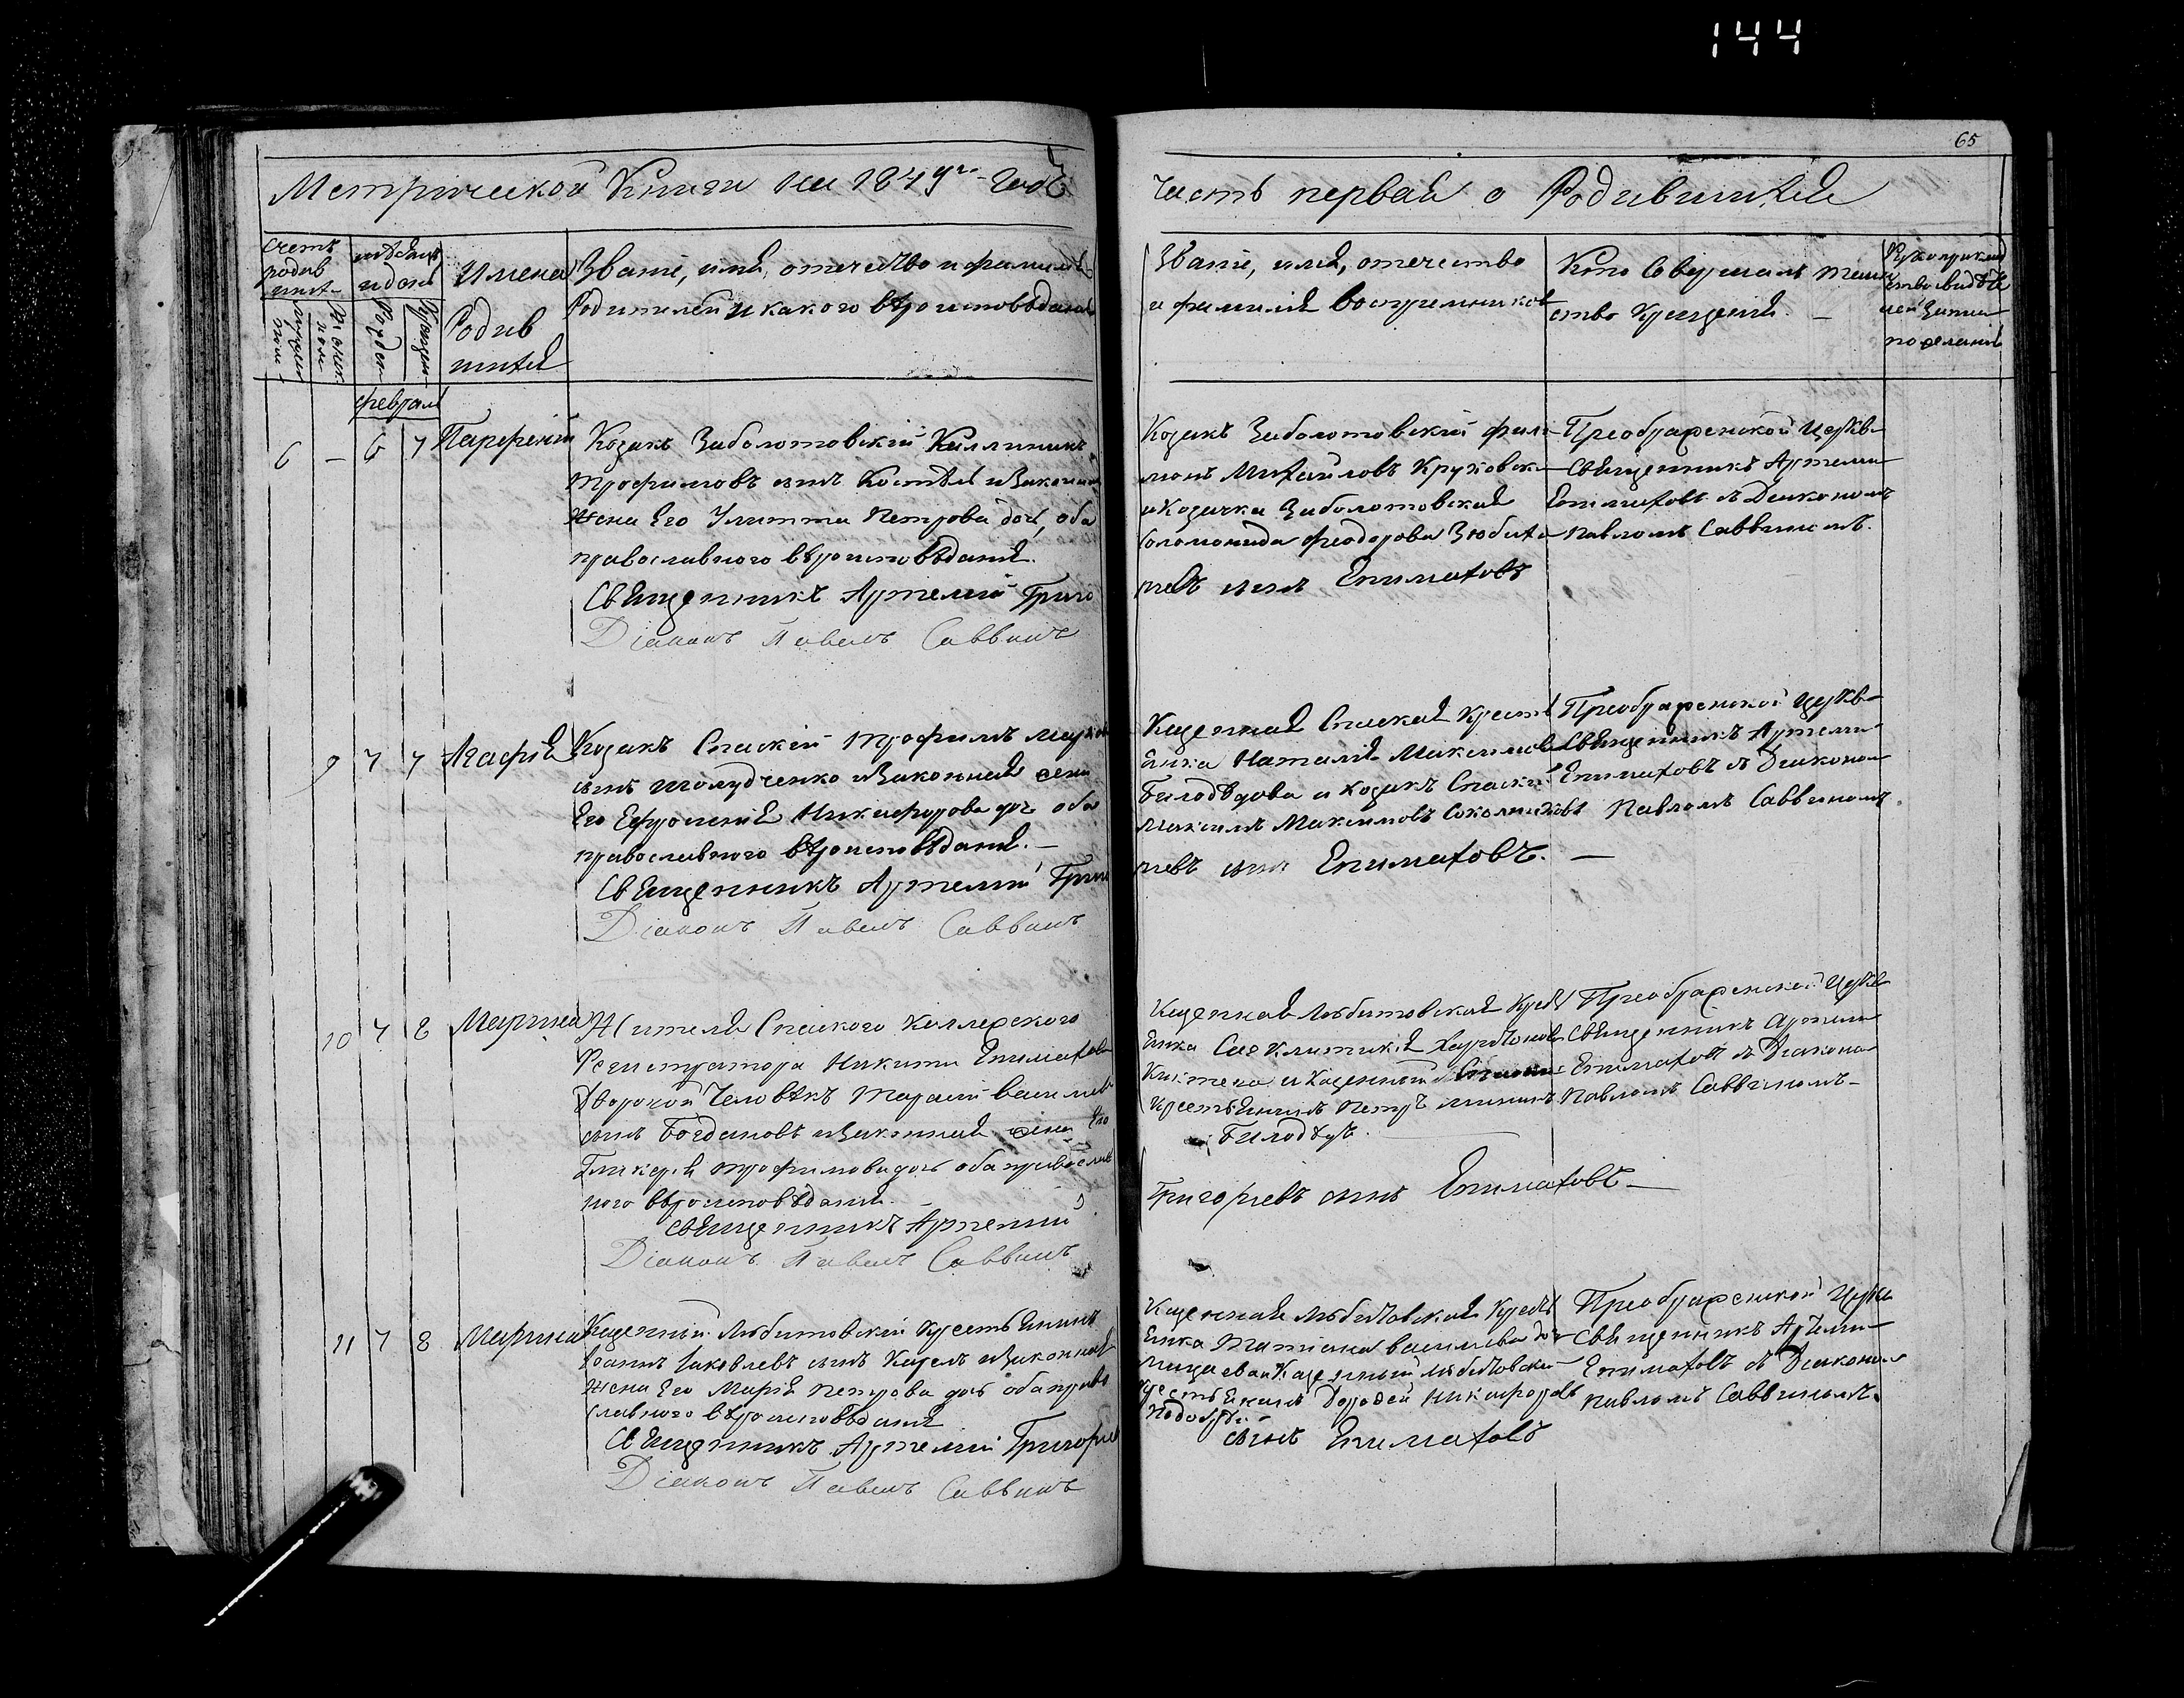 144
65
Метрической Книги на 1849го Годъ
Часть первая о Родившихся
Счетъ родив шихся
мѣсяцъ и день
Имена Родив шихся
Званіе, имя, отечество и фамилія
Родителей и какого вѣроисповѣданія
Званіе, имя, отечество
и фамилія Воспріемниковъ
Кто Совершалъ таин
ство Крещенія. —
Рукоприклад
ство свидѣте
лей Записи
по желанію
Февраль
6 — 6 7 Парфеній
Козакъ Заболотовскій Каллиникъ
Трофимовъ сынъ и Законная
Жена Его Улитта Петрова дочь, оба
православного вѣроисповѣданія.
Священникъ Артемій Григо
Діаконъ Павелъ Саввинъ
Козакъ Заболотовскій Фили
монъ Михайловъ
и Козачка Заболотовская
Соломонида Феодорова
рьевъ сынъ Епимаховъ
Преображенской Церкви
Священникъ Артемій
Епимаховъ съ Діакономъ
Павломъ Саввинымъ.
9 7 7 Агафія
Козакъ Спаскій Трофимъ
сынъ Шолудченко и Законная жена
Его Ефросинія Никифорова доч оба
православного вѣроисповѣданія. —
Священникъ Артемій Григо
Діаконъ Павелъ Саввинъ
Казенная Спаская Кресть
янка Наталія Максимова
Билодѣдова и козакъ Спаскій
Максимъ Максимовъ
рьевъ сынъ Епимаховъ. —
Преображенской Церкви
Священникъ Артемій
Епимаховъ съ Діакономъ
Павломъ Саввинымъ.
10 7 8 Марина
Жителя Спаского Коллежского
Регистратора Никиты Епимахова
Дворовой Человѣкъ Тарасій Васильевъ
сынъ Богдановъ и Законная жена Его
Гликерія Трофимова дочь оба православ
ного вѣроисповѣданія. —
Священникъ Артемій
Діаконъ Павелъ Саввинъ
Казенная Любитовская Кресть
янка Харитонова
и Казенной
Крестьянинъ Петръ
Билодѣдъ.
Григорьевъ сынъ Епимаховъ —
Преображенской Церкви
Священникъ Артемій
Епимаховъ съ Діакономъ
Павломъ Саввинымъ —
11 7 8 Марина
Казенный Любитовскій Крестьянинъ
Іоаннъ Іаковлевъ сынъ и Законная
Жена Его Марія Петрова дочь оба право
славного вѣроисповѣданія
Священникъ Артемій Григорье
Діаконъ Павелъ Саввинъ
Казенная Любитовская Кресть
янка Татіана Васильева доч
и Казенный Любитовскій
Крестьянинъ Дорофей Никифоровъ
сынъ Епимаховъ
Преображенской Церкви
Священникъ Артемій
Епимаховъ съ Діакономъ
Павломъ Саввинымъ.